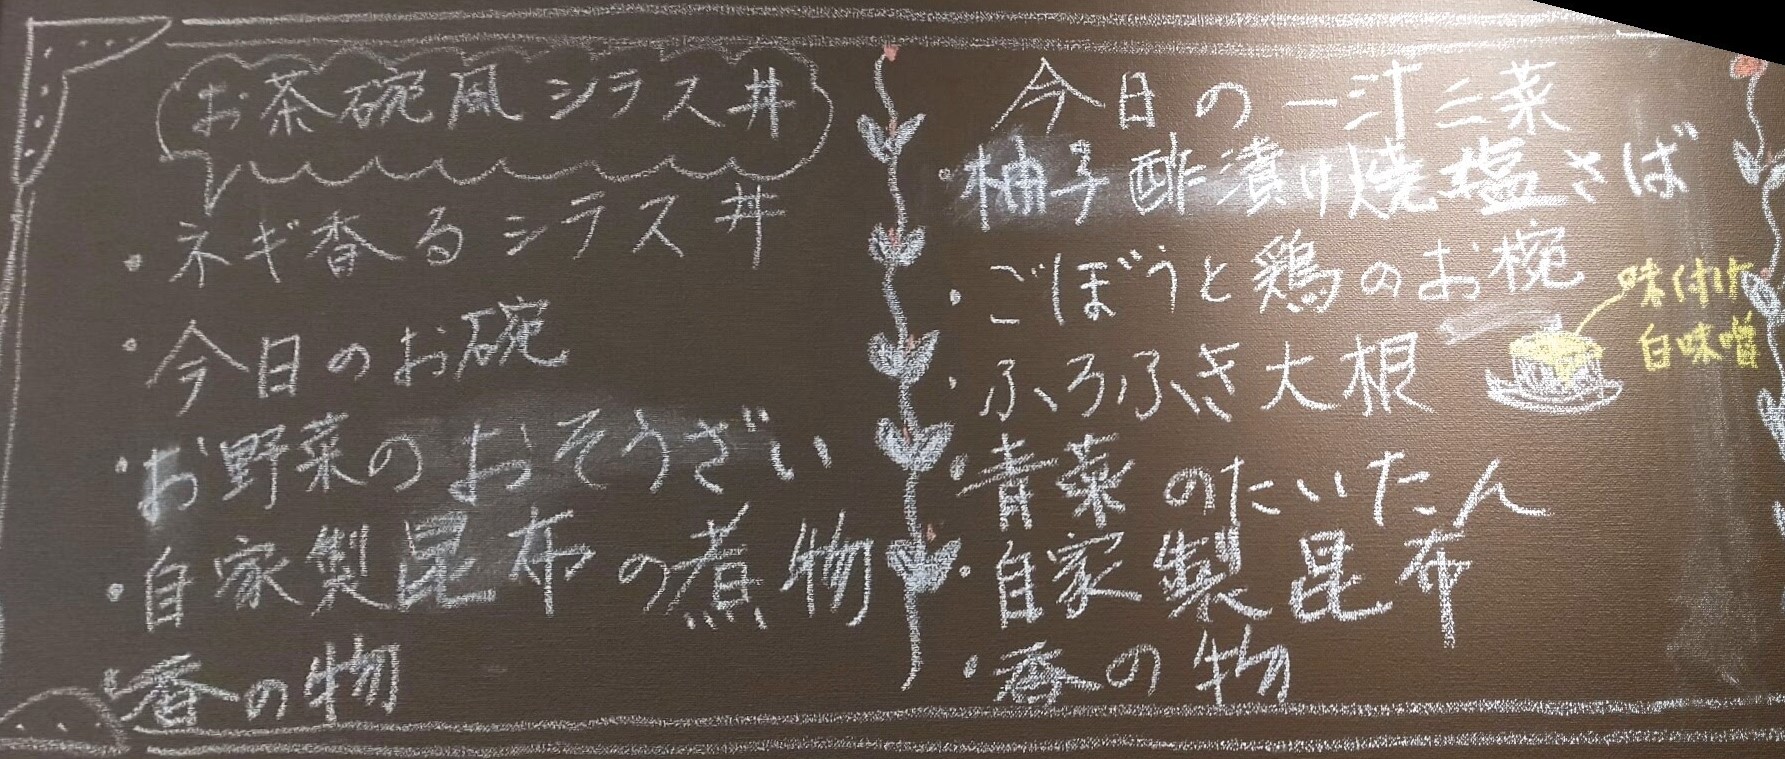 お茶碗風シラス丼
・ネギ香るシラス丼
・今日のお碗
・お野菜のおそうざい
・自家製昆布の煮物
・香の物
今日の一汁三菜
・柚子酢漬け焼塩さば
・ごぼうと鶏のお椀
・ふろふき大根
味付け
白味噌
・青菜のたいたん
・自家製昆布
・香の物